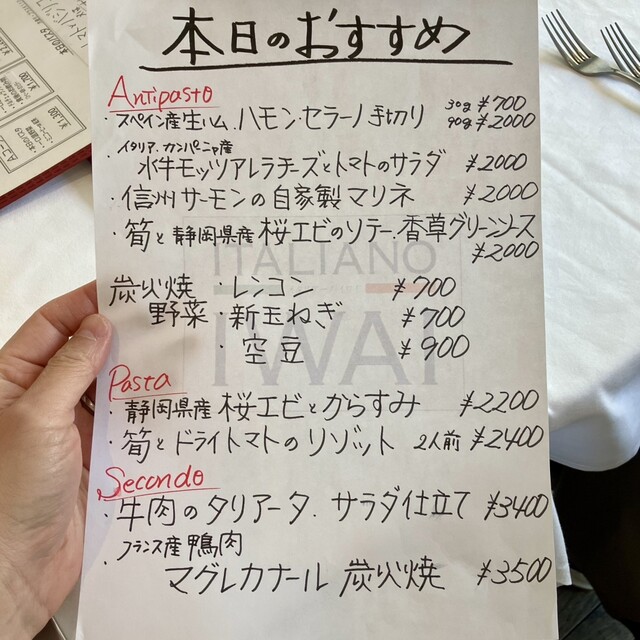 本日のおすすめ
Antipasto
・スペイン産生ハム、ハモンセラーノ手切り 30g ¥700
90g ¥2000
・イタリア、カンパーニャ産
水牛モッツアレラチーズとトマトのサラダ ¥2000
・信州サーモンの自家製マリネ ¥2000
・筍と静岡県産 桜エビのソテー、香草グリーンソース
¥2000
炭火焼 ・レンコン ¥700
野菜 ・新玉ねぎ ¥700
・空豆 ¥900
Pasta
・静岡県産 桜エビとからすみ ¥2200
・筍とドライトマトのリゾット 2人前 ¥2400
Secondo
・牛肉のタリアータ、サラダ仕立て ¥3400
・フランス産鴨肉
マグレカナール 炭火焼 ¥3500
ITALIANO
IWAI